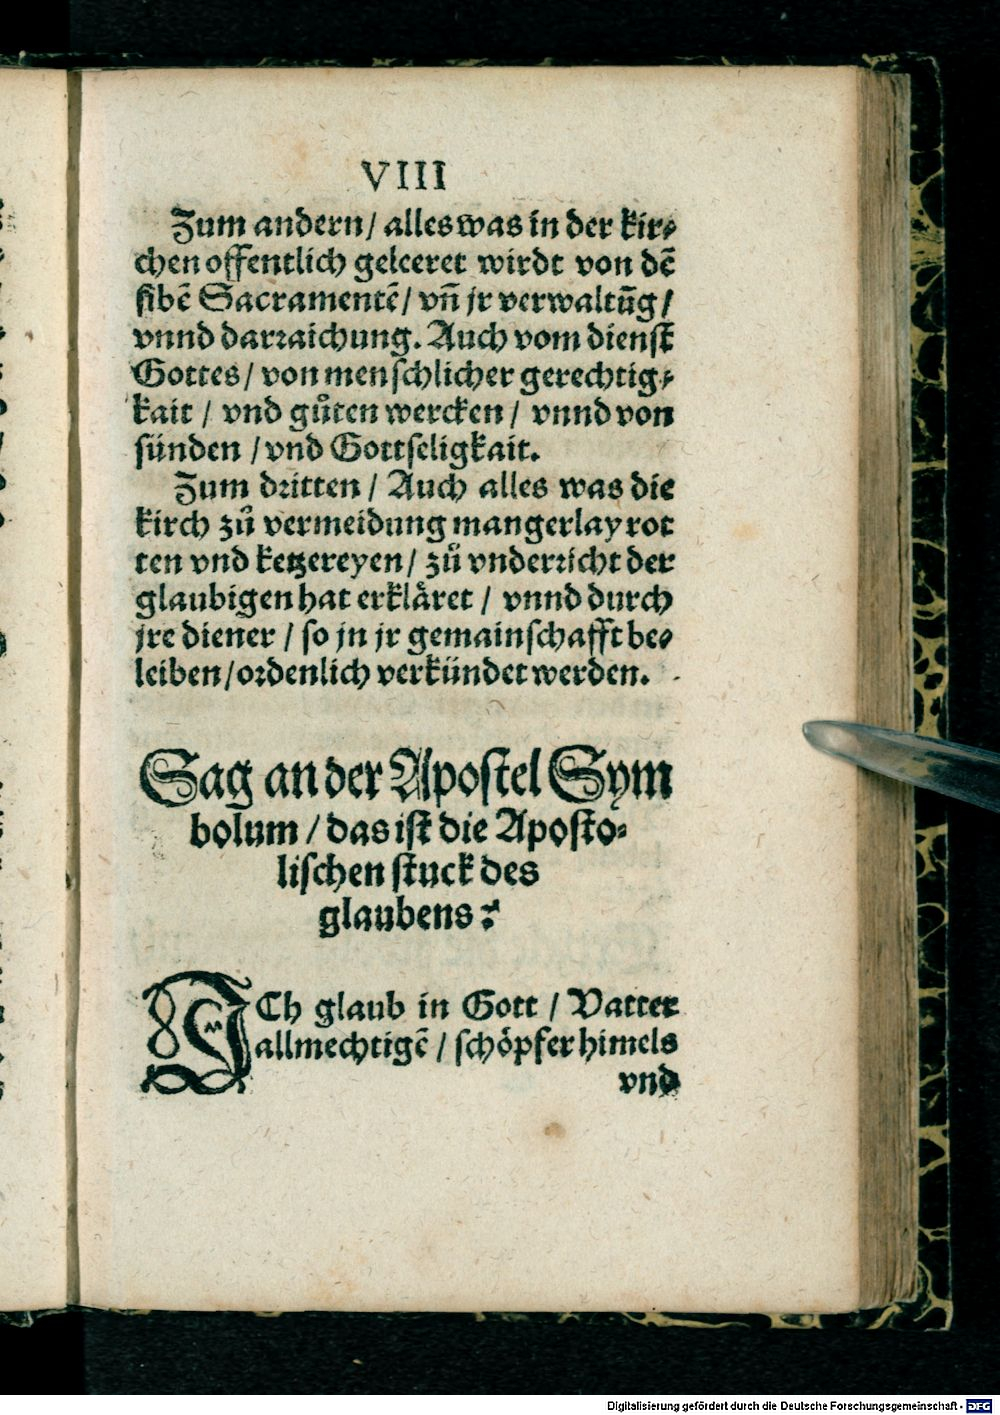 VIII
Zum andern / alles was in der kir⸗
chen offentlich geleeret wirdt von dē
sibē Sacramentē / vñ jr verwaltūg /
vnnd darraichung. Auch vom dienst
Gottes / von menschlicher gerechtig⸗
kait / vnd gůten wercken / vnnd von
sünden / vnd Gottseligkait.
Zum dritten / Auch alles was die
kirch zů vermeidung mangerlay rot
ten vnd ketzereyen / zů vnderricht der
glaubigen hat erkläret / vnnd durch
jre diener / so jn jr gemainschafft be⸗
leiben / ordenlich verkündet werden.
Sag an der Apostel Sym
bolum / das ist die Aposto⸗
lischen stuck des
glaubens?
ICh glaub in Gott / Vatter
allmechtigē / schöpfer himels
vnd
Digitalisierung gefördert durch die Deutsche Forschungsgemeinschaft - DFG